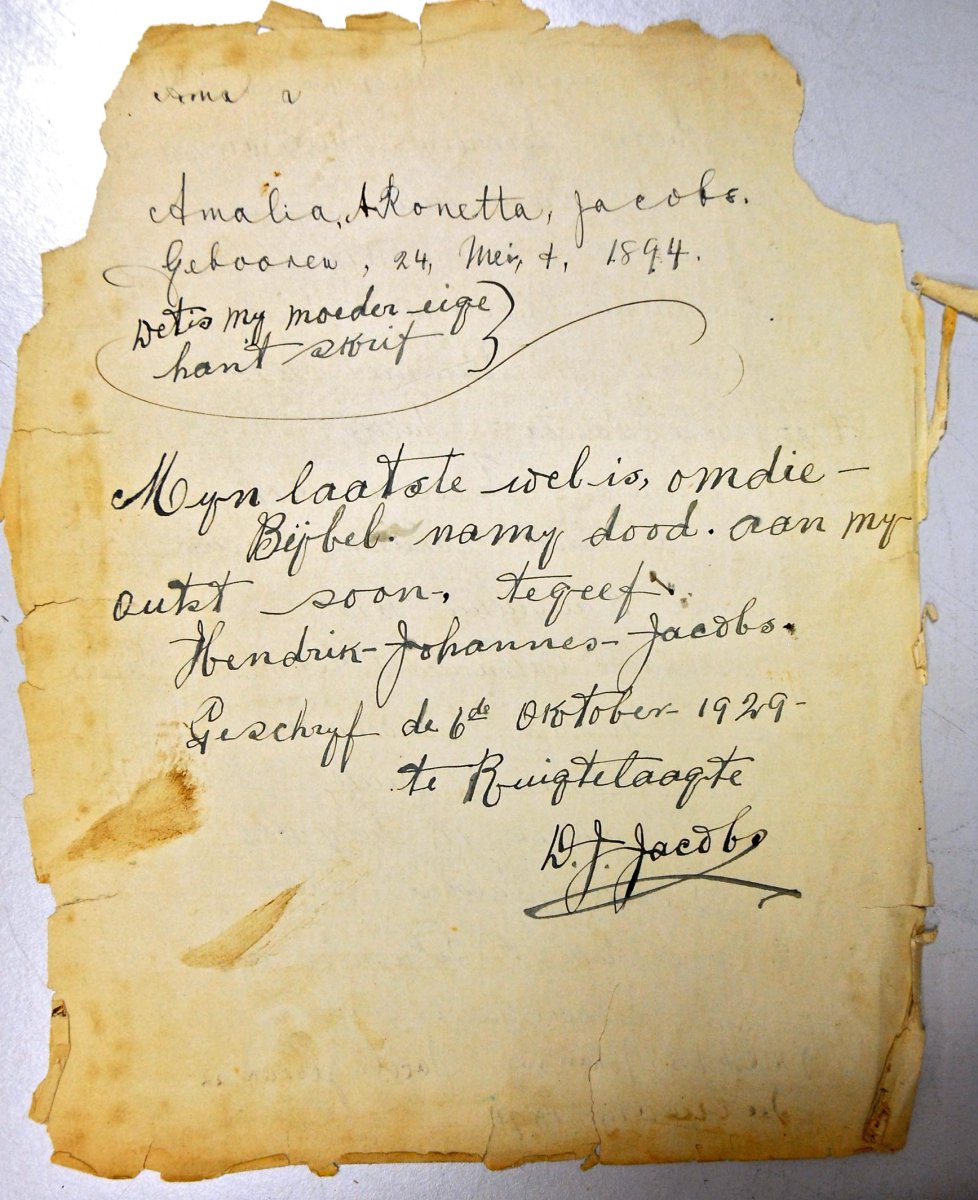 Ama a
Amalia, ARonetta, Jacobs.
Gebooren, 24, Mei, 1894.
Det is my moeder eige
hant skrif
Myn laatste wel is, omdie -
Bijbel. namy dood. aan my
outst soon, tegeef.
Hendrik - Johannes - Jacobs.
Geschryf de 6de Oktober - 1929 -
te Ruigtelaagte
D. J. Jacobs